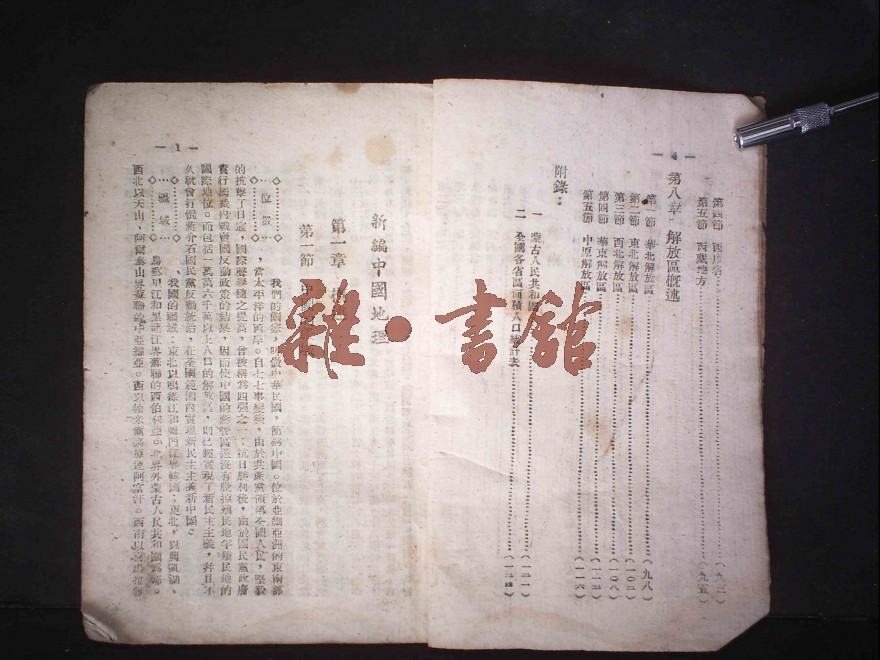 — 4 —
第四節 西康省……(九三)
第五節 西藏地方……(九五)
第八章 解放區概述
第一節 華北解放區……(九八)
第二節 東北解放區……(一〇三)
第三節 西北解放區……(一〇八)
第四節 華東解放區……(一一三)
第五節 中原解放區……(一一六)
附錄:
一 蒙古人民共和國……(一二一)
二 全國各省區面積人口統計表……(一二四)
— 1 —
新編中國地理
第一章
第一節 中
位置
我們的國家,叫做中華民國,簡稱中國。位於亞細亞洲的東南部
,當太平洋的西岸。自七七事變後,由於共產黨領導全國人民,堅持
的抗擊了日寇,國際聲譽隨之提高,曾被稱爲四强之一;抗日勝利後,由於國民黨政府
實行國幾內戰賣國反動政策的結果,因而使中國的蔣管區還沒有脫掉殖民地半殖民地的
國際地位。而包括一萬萬六千萬以上人口的解放區,則已經實現了新民主主義,幷且不
久就會打倒蔣介石國民黨反動統治,在全國範圍內實現新民主主義新中國。
疆域
我國的疆域:東北以鴨綠江和圖們江界韓國;東北,以興凱湖、
烏蘇里江和黑龍江界蘇聯的西伯利亞。北界外蒙古人民共和國爲鄰。
西北以天山、阿爾泰山界蘇聯中亞細亞。西以帕米爾高原連阿富汗。西南以
雜·書館